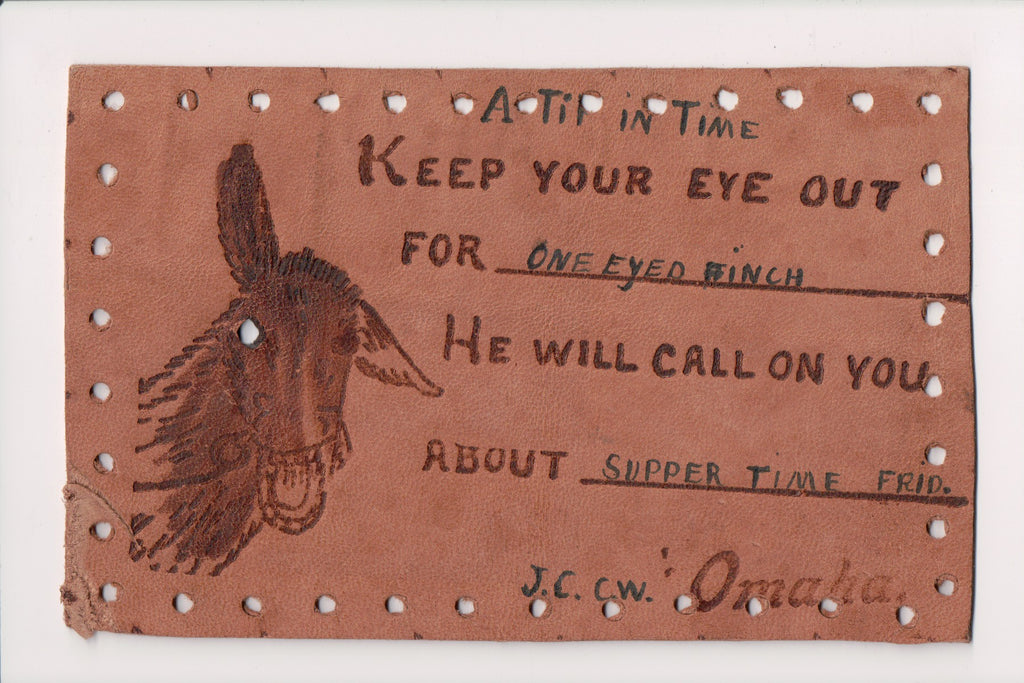 A TIP IN TIME
KEEP YOUR EYE OUT
FOR ONE EYED FINCH
HE WILL CALL ON YOU
ABOUT SUPPER TIME FRID.
J.C. C.W. Omaha.